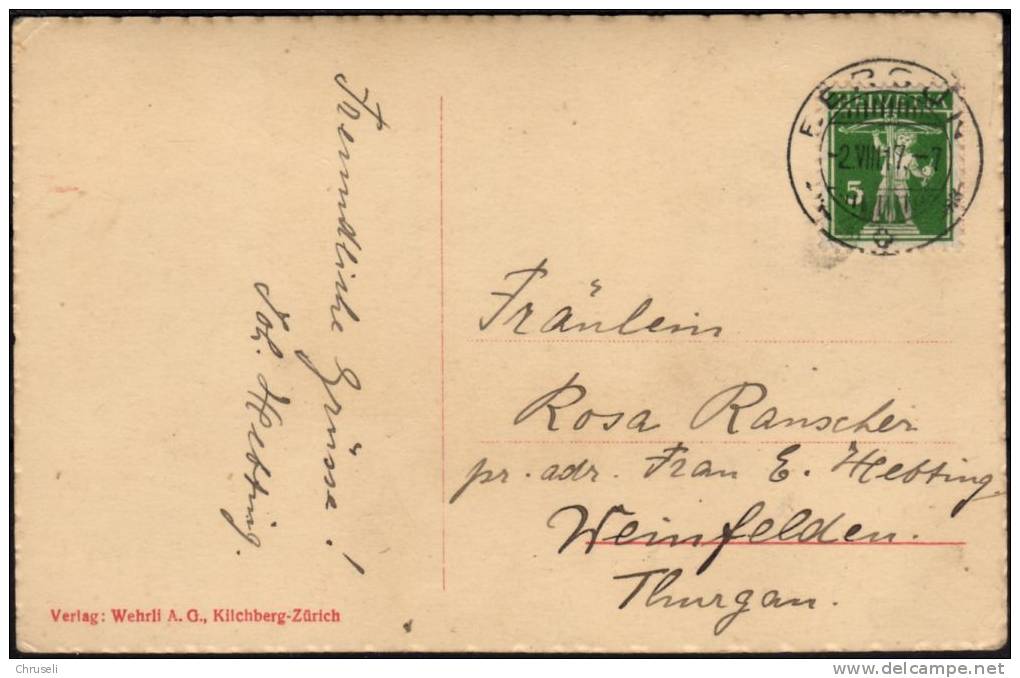 Freundliche Grüsse!
Hetting.
BERGÜN
-2.VIII.17.-7
5
Fräulein
Rosa Rauscher
pr. adr. Frau E. Hetting
Weinfelden.
Thurgau.
Verlag: Wehrli A. G., Kilchberg-Zürich
Chruseli
delcampe.net